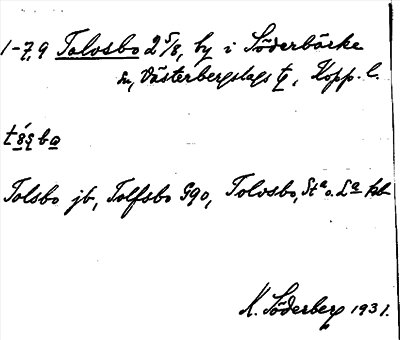 1-7,9 Tolvsbo 2 5/8, by i Söderbärke
sn, Västerbergslags tg, Kopp. l.
Tolsbo jb, Tolfsbo G90, Tolvsbo, St a o. L a kb
K. Söderberg 1931.